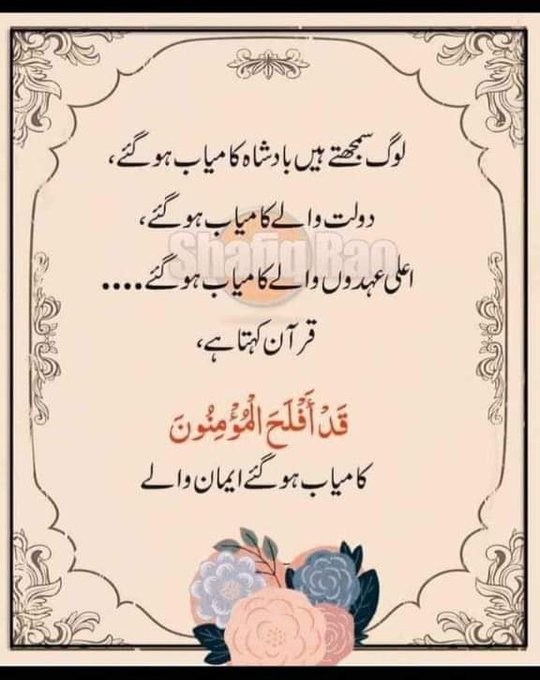 لوگ سمجھتے ہیں بادشاہ کامیاب ہو گئے،
دولت والے کامیاب ہو گئے،
Shafiq Rao
اعلی عہدوں والے کامیاب ہو گئے....
قرآن کہتا ہے،
قَدْ أَفْلَحَ الْمُؤْمِنُونَ
کامیاب ہو گئے ایمان والے